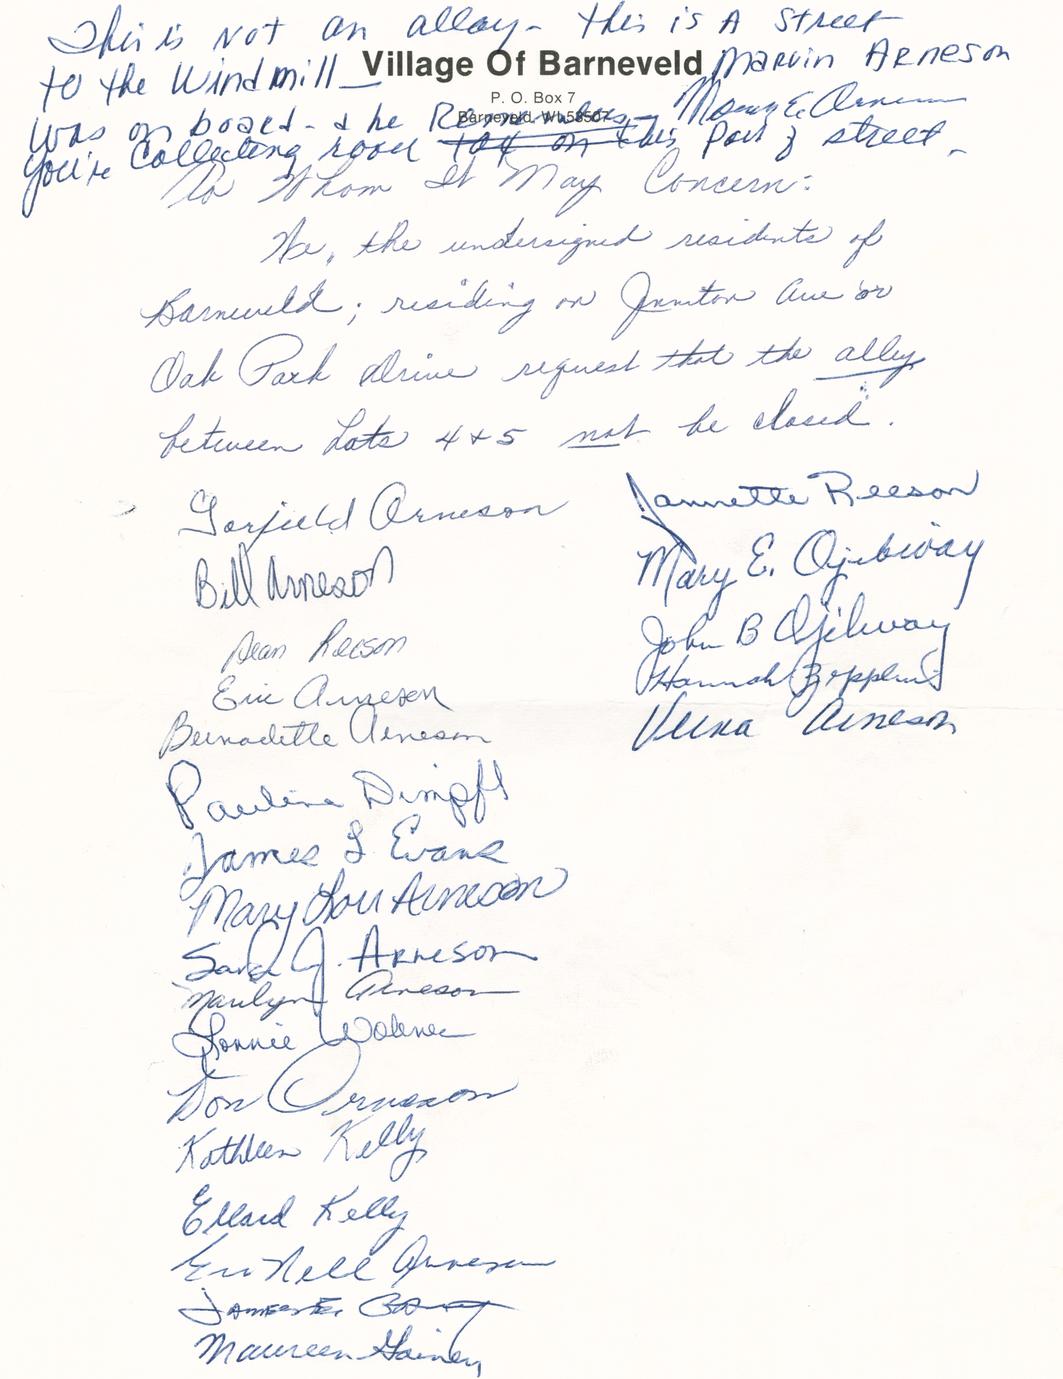 This is not an alley - this is A street
to the Windmill - Village Of Barneveld Marvin Arneson
P. O. Box 7
Barneveld, WI 53507
was on board - & he Remembers
You're Collecting road on this part of street.
To Whom It May Concern:
We, the undersigned residents of
Barneveld; residing on Ave or
Oak Park Drive request that the alley
between Lots 4 + 5 not be closed.
Garfield Arneson
Bill Arneson
Dean Reeson
Eric Arneson
Bernadette Arneson
Pauline Dimpfl
James L Evans
Mary Lou Arneson
Sara J. Arneson
Marilyn Arneson
Lonnie
Don Arneson
Kathleen Kelly
Ellard Kelly
Arneson
James E.
Maureen
Jannette Reeson
Mary E. Ojibway
John B Ojibway
Hannah
Verna Arneson